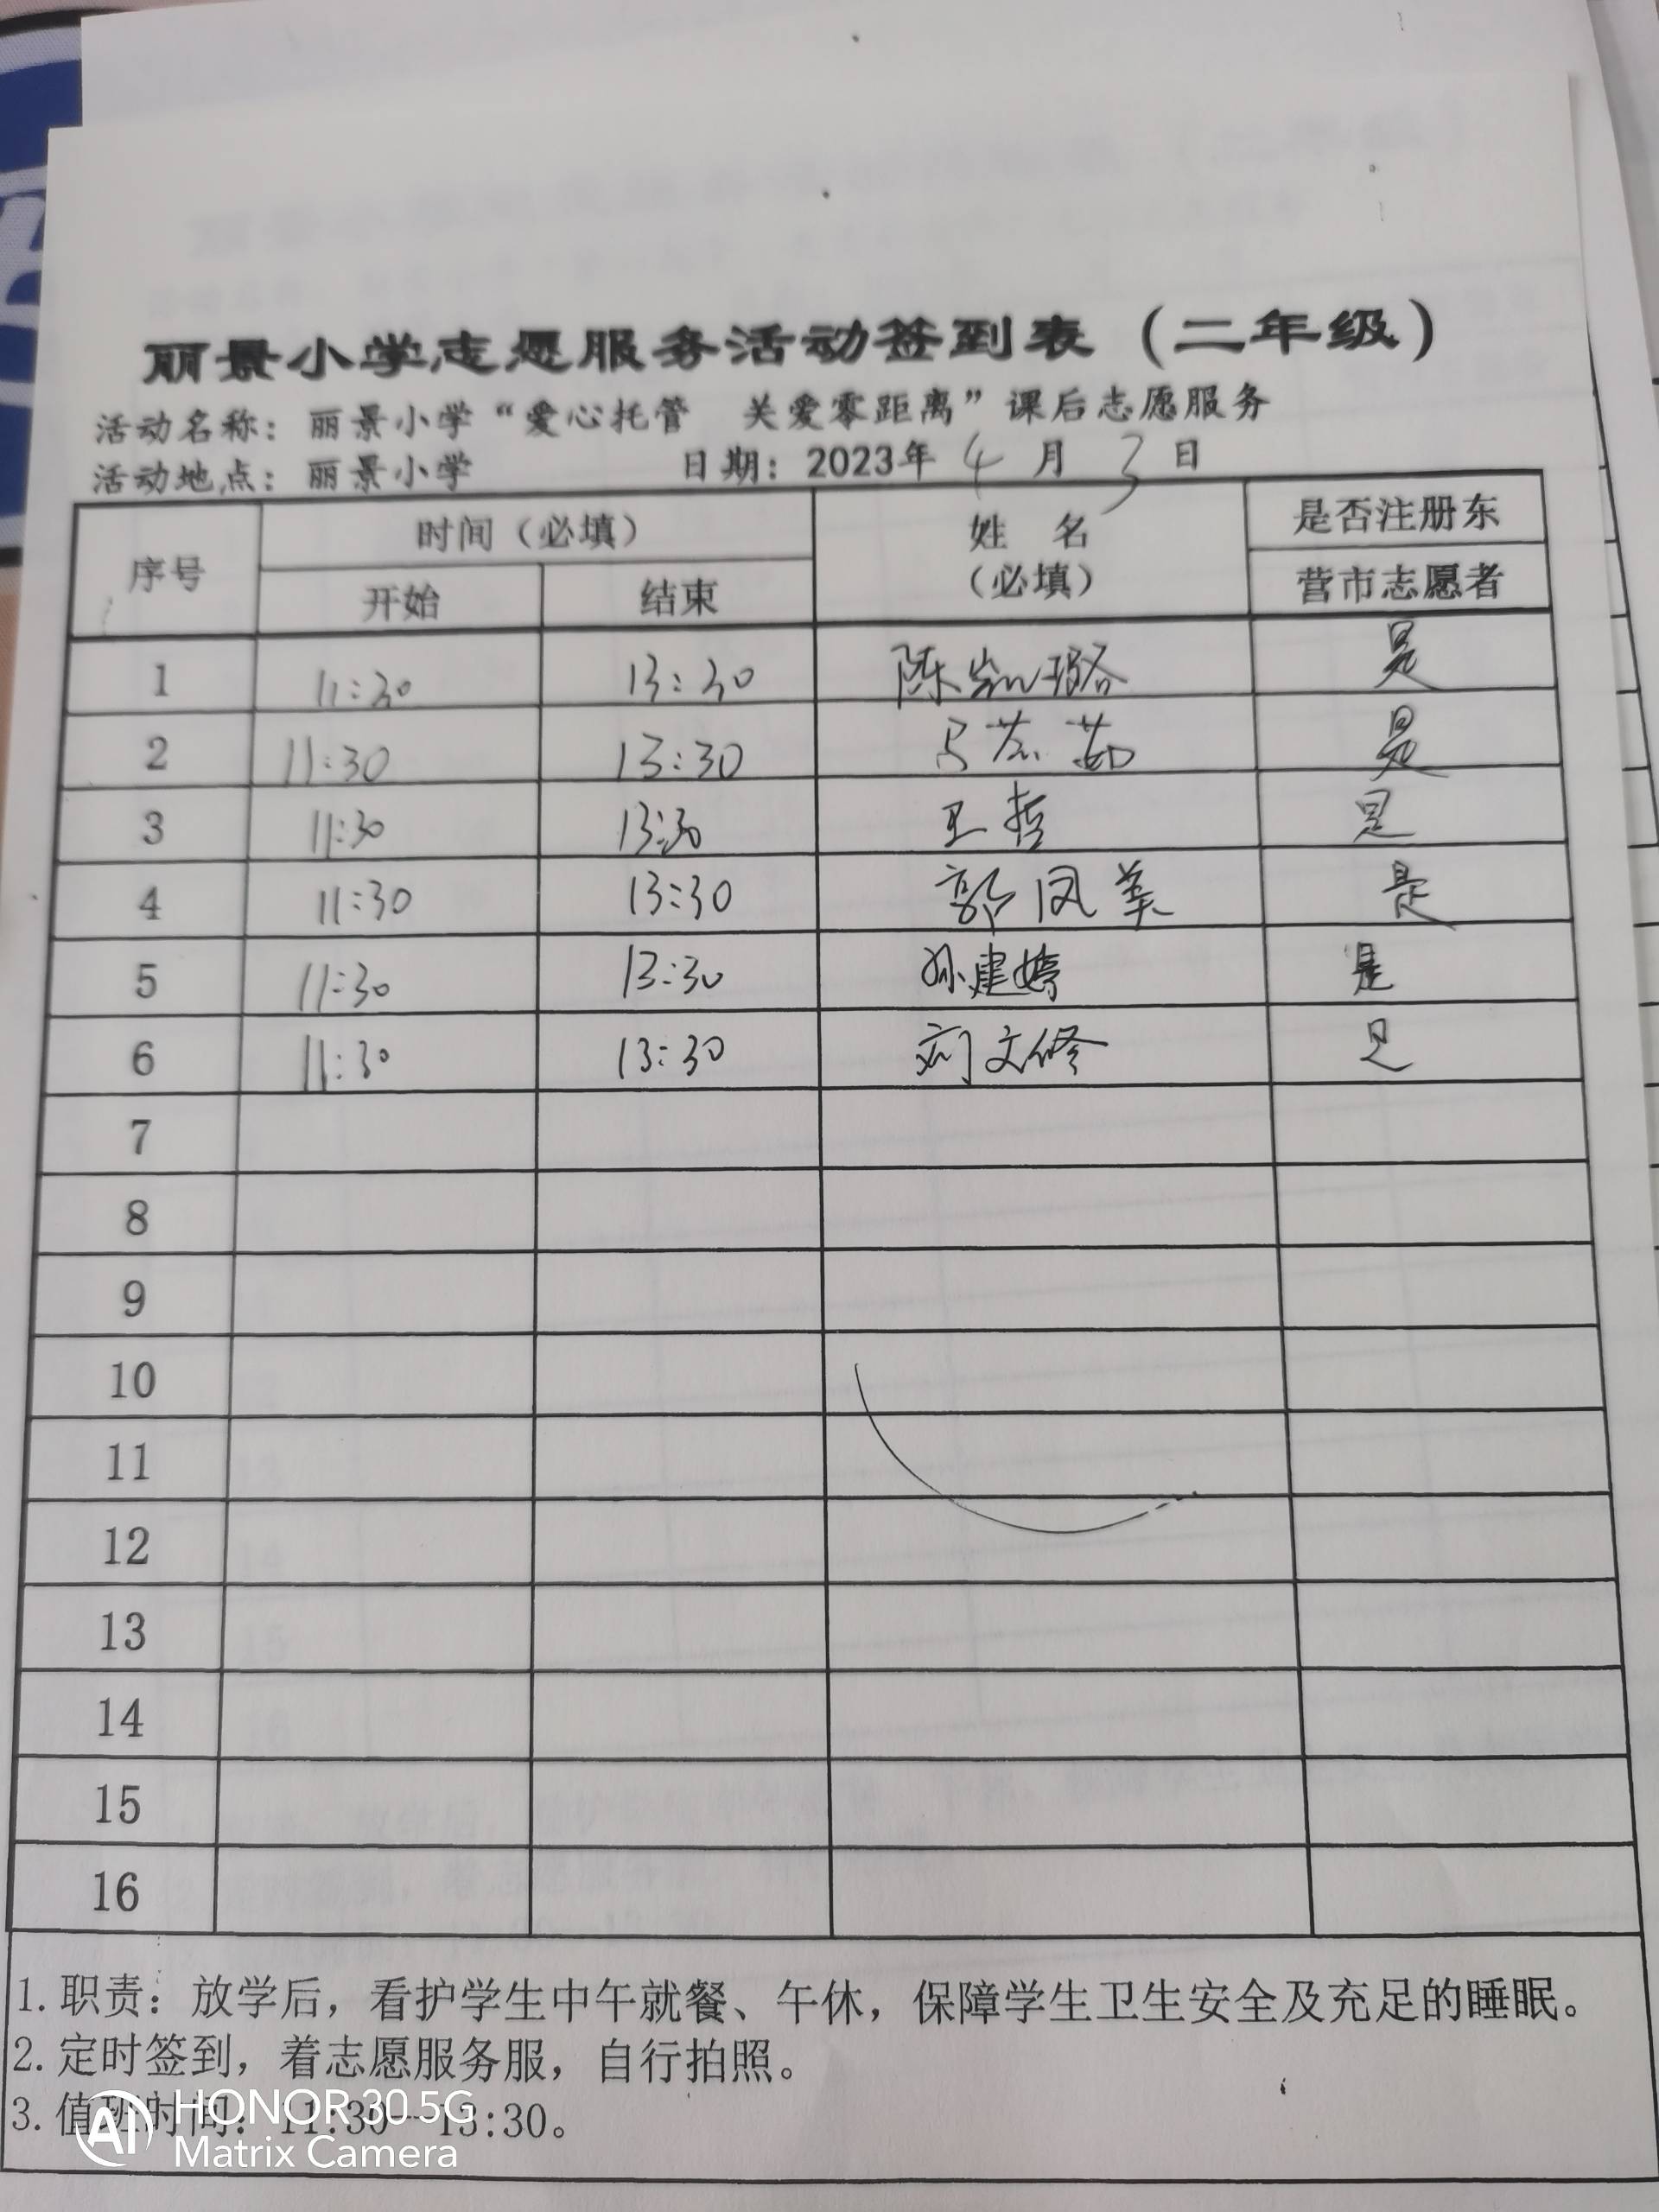 丽景小学志愿服务活动签到表（二年级）
活动名称：丽景小学“爱心托管 关爱零距离”课后志愿服务
活动地点：丽景小学 日期：2023年4月3日
序号 时间（必填） 姓名（必填） 是否注册东营市志愿者
开始 结束
1 11:30 13:30 陈 是
2 11:30 13:30 是
3 11:30 13:30 王哲 是
4 11:30 13:30 郭凤美 是
5 11:30 13:30 孙建婷 是
6 11:30 13:30 刘文修 是
7
8
9
10
11
12
13
14
15
16
1.职责：放学后，看护学生中午就餐、午休，保障学生卫生安全及充足的睡眠。
2.定时签到，着志愿服务服，自行拍照。
3.值班时间：11:30—13:30。
AI HONOR 30 5G
Matrix Camera